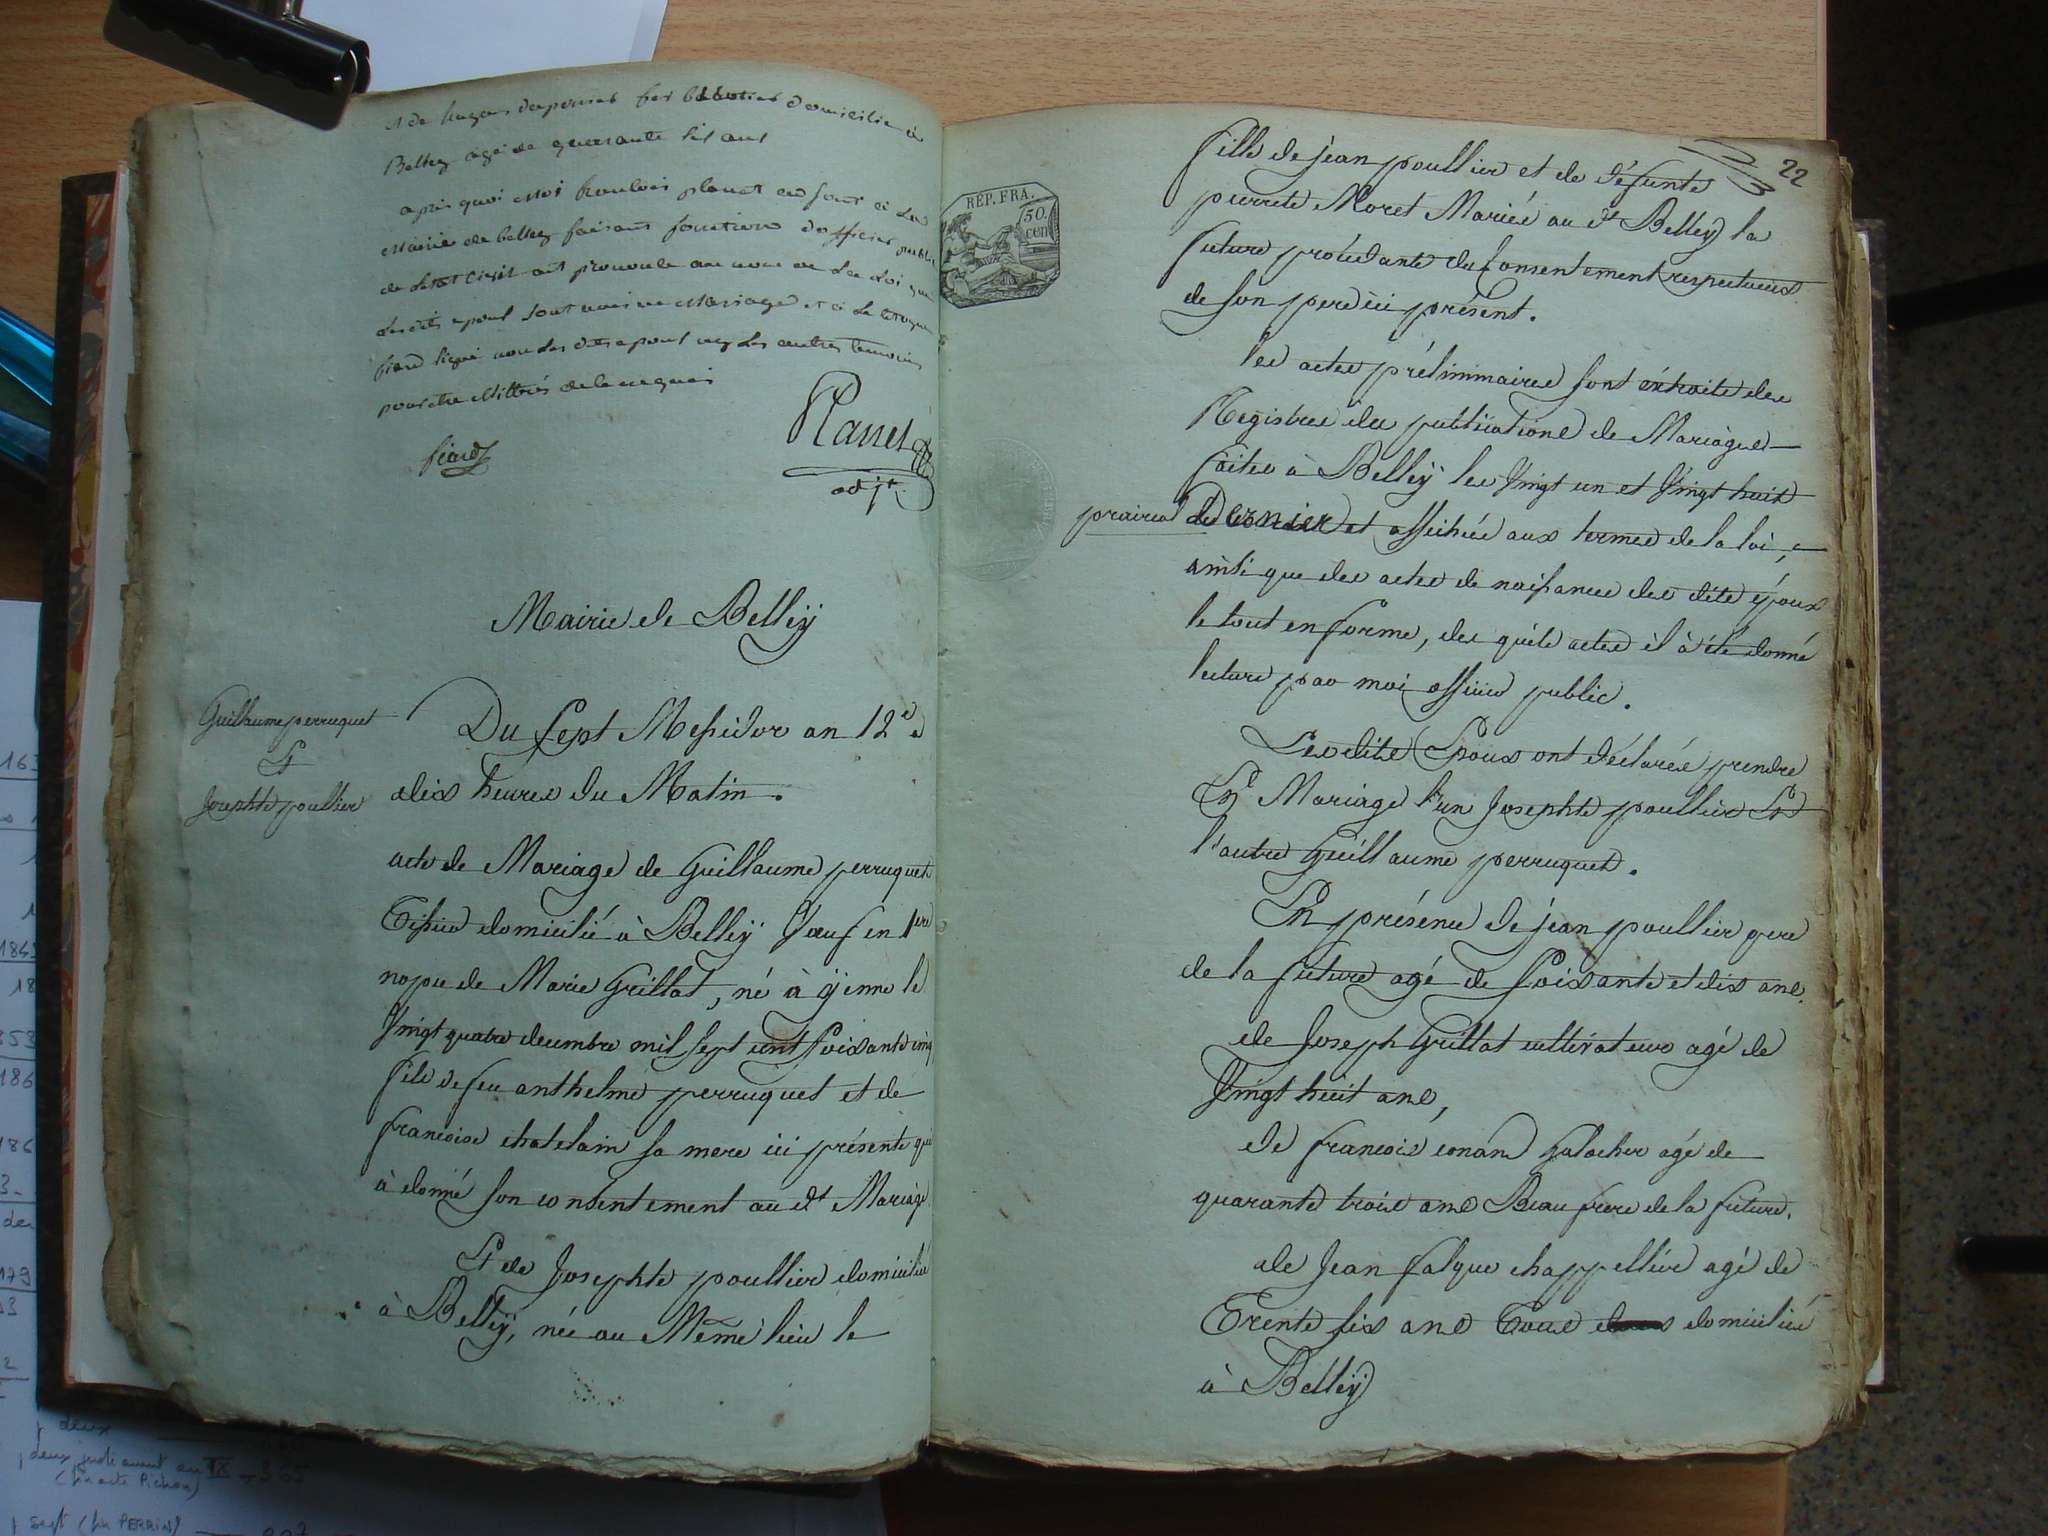 et de hugues desperries fer blantier domicilié à
Belley agé de quarante six ans
après quoi moi planet adjoint à la
Mairie de belley faisant fonctions d'officier public
de letat civil ait prononcé au nom de La Loi que
Lesdits epoux sont unis en Mariage et a Le temoin
picard signé non Les dits epoux ny Les autres temoins
pour etre illitrés de ce requis
picard
Planet
adjt.
Mairie de Belleÿ
Guillaume perruquet
Et
Josephte poullier
Du Sept Messidor an 12e à
dix heures du Matin.
acte de Mariage de Guillaume perruquet
Tissier domicilié à Belleÿ Vœuf en 1ere
nopce de Marie Grillat, né à ÿenne le
Vingt quatre decembre mil sept cent soixante cinq
fils de feu anthelme perruquet et de
francoise chatelain sa mere ici présente qui
à donné son consentement au dt Mariage
Et de Josephte poullier domiciliée
à Belleÿ, née au Même lieu le
22
fille de jean poullier et de défunte
pierrete Moret Mariée au dt Belleÿ la
future procédante du Consentement respectueux
de son pere ici présent.
les actes préliminaires sont extraits des
Registres des publications de Mariages
faites à Belleÿ les Vingt un et Vingt huit
prairial Dernier et affichées aux termes de la loi,
ainsi que des actes de naissances des dits époux
le tout en forme, des quels actes il à été donné
lecture par moi officier public.
Lesdits Epoux ont déclarés prendre
En Mariage l'un Josephte poullier Et
l'autre Guillaume perruquet.
En présence de jean poullier pere
de la future agé de soixante et dix ans.
de Joseph Grillat cultivateur agé de
Vingt huit ans,
de francois conand Galocher agé de
quarante trois ans Beau frere de la future.
de Jean falque chappellier agé de
Trente six ans Tous domiciliés
à Belleÿ
RÉP. FRA.
50.
cen.